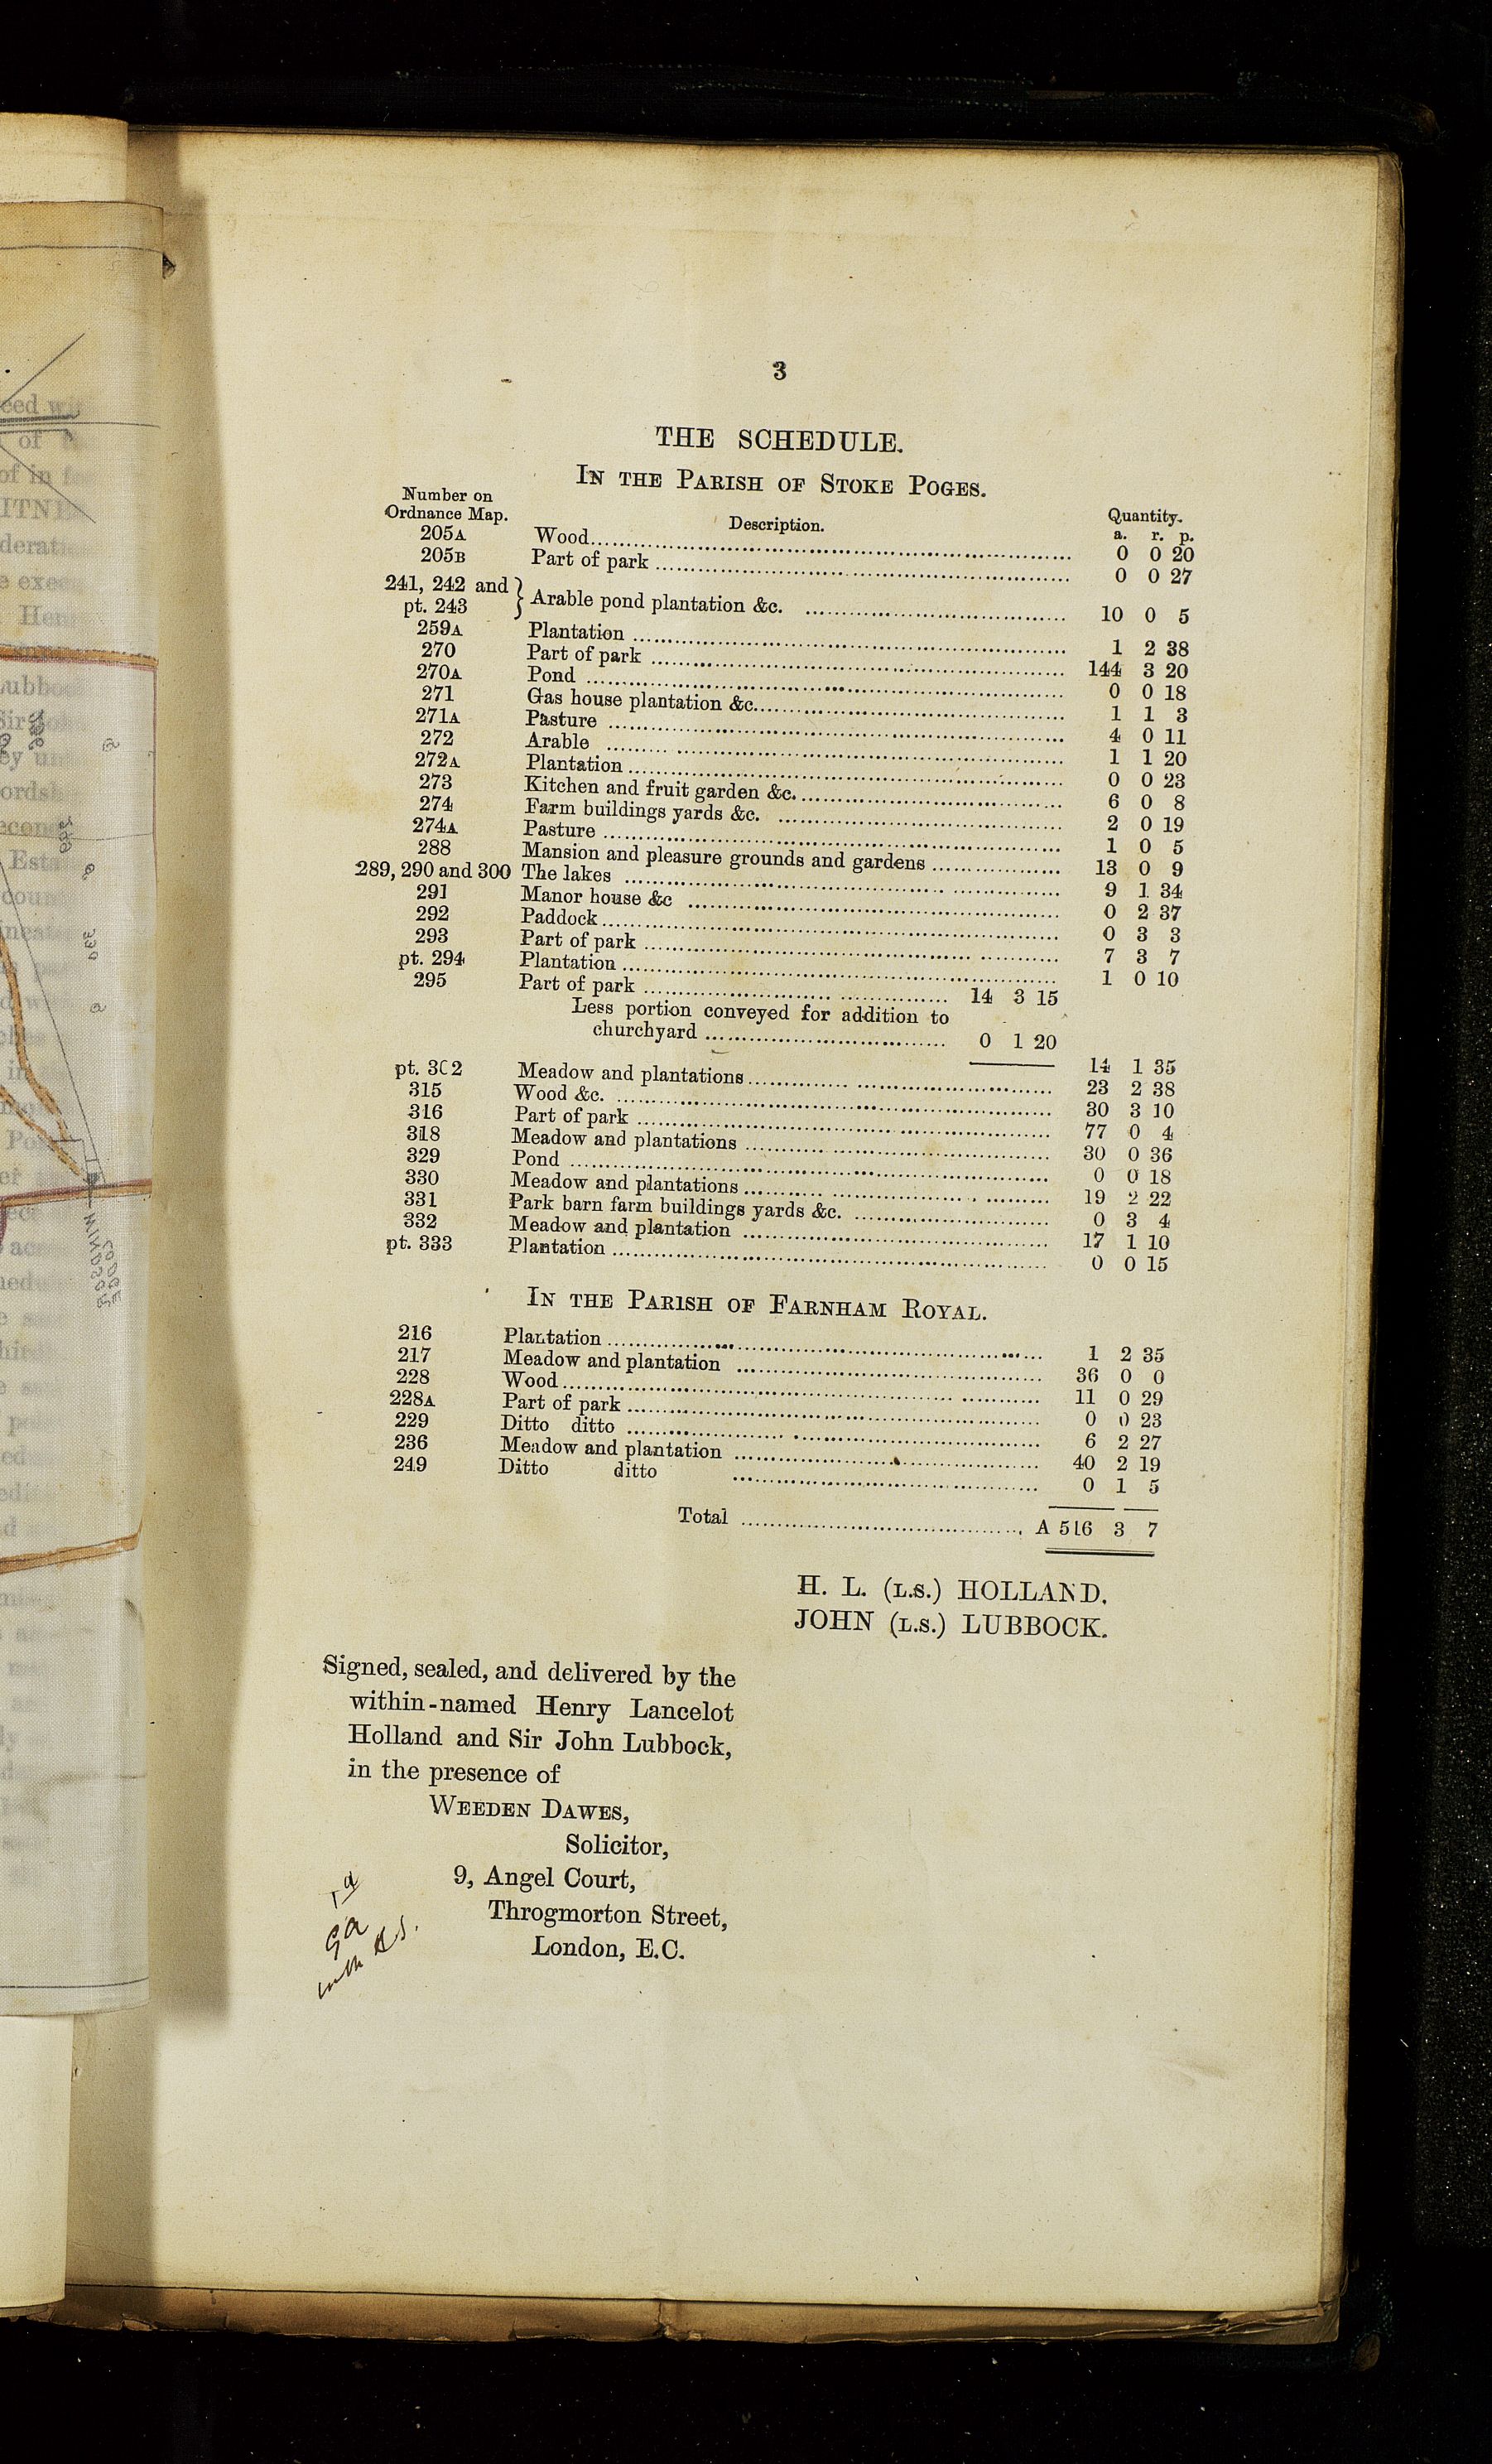 3
THE SCHEDULE.
IN THE PARISH OF STOKE POGES.
Number on Ordnance Map. Description. Quantity.
a. r. p.
205A Wood 0 0 20
205B Part of park 0 0 27
241, 242 and pt. 243 } Arable pond plantation &c. 10 0 5
259A Plantation 1 2 38
270 Part of park 144 3 20
270A Pond 0 0 18
271 Gas house plantation &c. 1 1 3
271A Pasture 4 0 11
272 Arable 1 1 20
272A Plantation 0 0 23
273 Kitchen and fruit garden &c. 6 0 8
274 Farm buildings yards &c. 2 0 19
274A Pasture 1 0 5
288 Mansion and pleasure grounds and gardens 13 0 9
289, 290 and 300 The lakes 9 1 34
291 Manor house &c 0 2 37
292 Paddock 0 3 3
293 Part of park 7 3 7
pt. 294 Plantation 1 0 10
295 Part of park 14 3 15
Less portion conveyed for addition to
churchyard 0 1 20
14 1 35
pt. 302 Meadow and plantations 23 2 38
315 Wood &c. 30 3 10
316 Part of park 77 0 4
318 Meadow and plantations 30 0 36
329 Pond 0 0 18
330 Meadow and plantations 19 2 22
331 Park barn farm buildings yards &c. 0 3 4
332 Meadow and plantation 17 1 10
pt. 333 Plantation 0 0 15
IN THE PARISH OF FARNHAM ROYAL.
216 Plantation 1 2 35
217 Meadow and plantation 36 0 0
228 Wood 11 0 29
228A Part of park 0 0 23
229 Ditto ditto 6 2 27
236 Meadow and plantation 40 2 19
249 Ditto ditto 0 1 5
Total A 516 3 7
H. L. (L.S.) HOLLAND.
JOHN (L.S.) LUBBOCK.
Signed, sealed, and delivered by the
within-named Henry Lancelot
Holland and Sir John Lubbock,
in the presence of
WEEDEN DAWES,
Solicitor,
9, Angel Court,
Throgmorton Street,
London, E.C.